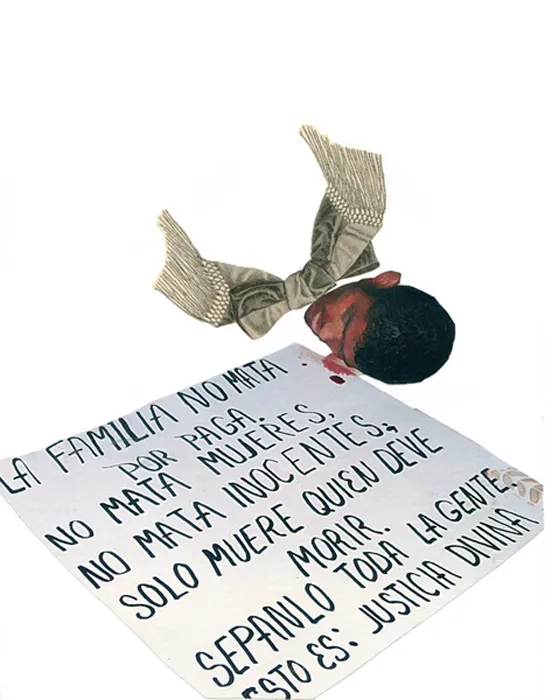 LA FAMILIA NO MATA
POR PAGA.
NO MATA MUJERES,
NO MATA INOCENTES;
SOLO MUERE QUIEN DEVE
MORIR.
SEPANLO TODA LA GENTE.
ESTO ES: JUSTICIA DIVINA.